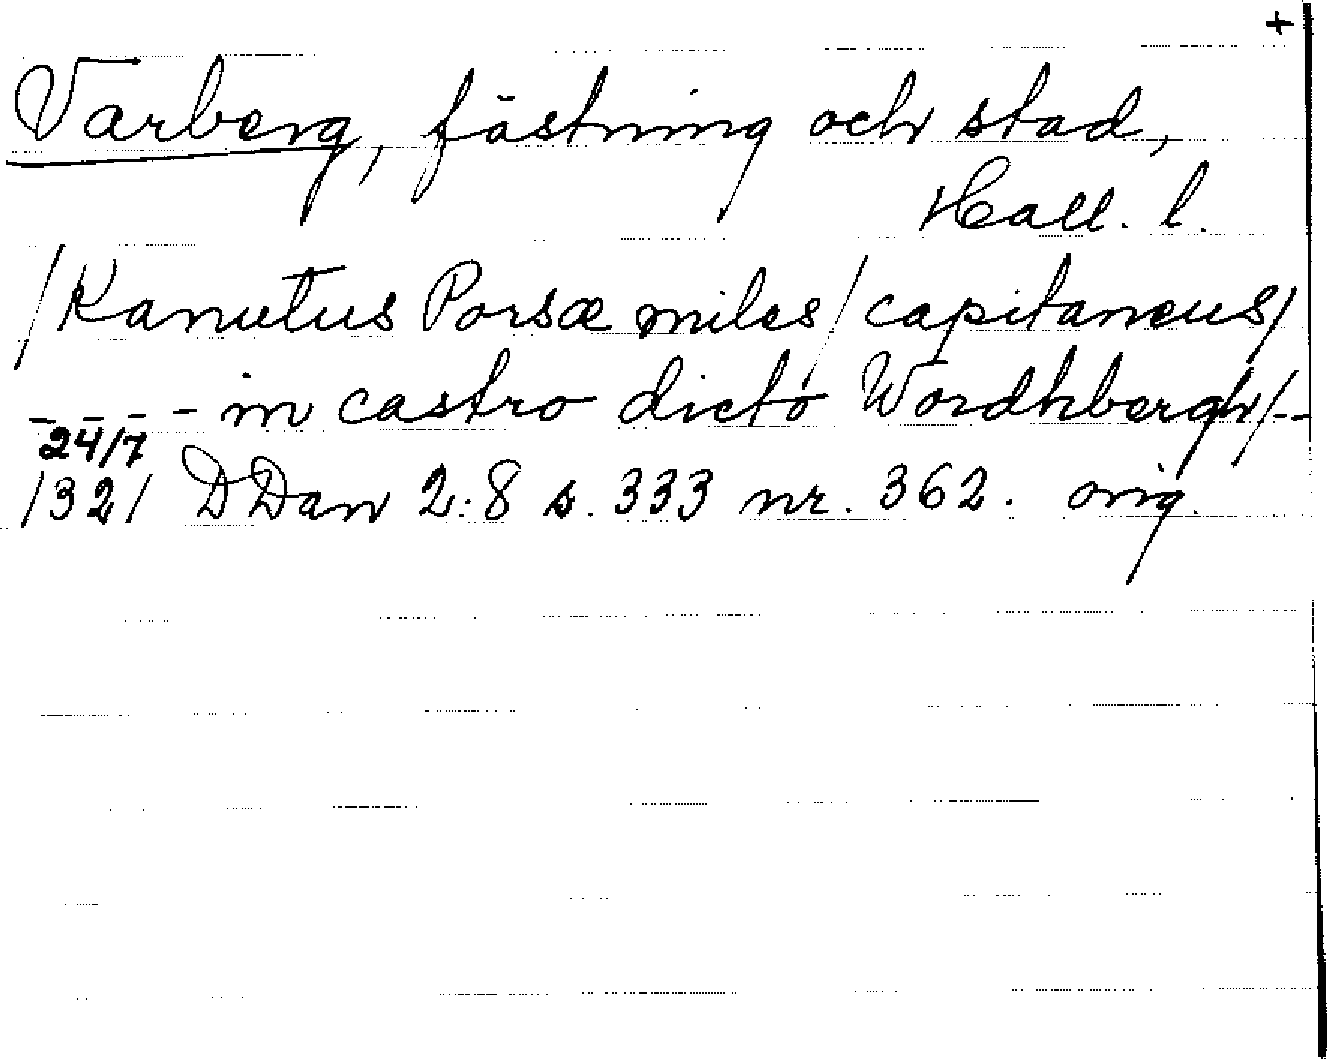 +
Varberg, fästning och stad,
Hall. l.
/Kanutus Porsæ miles/capitaneus/
---- in castro dicto Wordhbergh/--
24/7
1321 DDan 2:8 s. 333 nr. 362. orig.